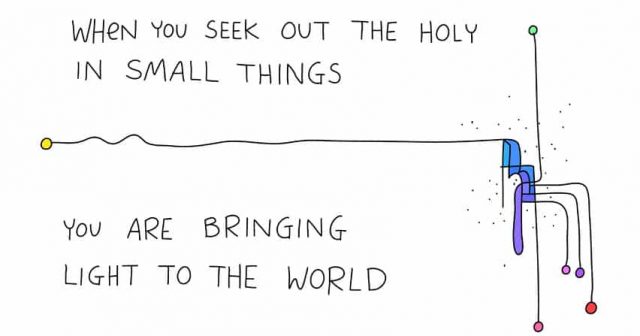 WHeN YoU SEEK OUT THE HOLY
IN SMALL THINGS
YoU ARE BRINGING
LIGHT TO THE WORLD